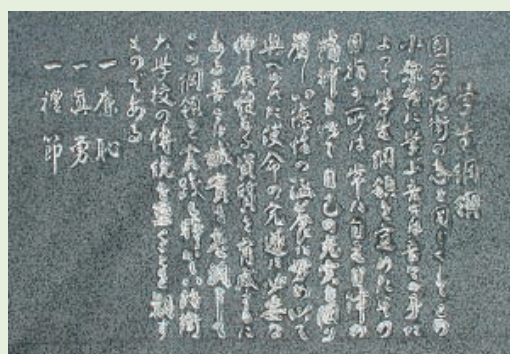 学生綱領
国家防衛の志を同じくしてこの
小原台に学ぶ は の手に
よって学生綱領を定めたその
目指す所は常に自主自律の
精神を 自己の充実を図り
厳しい徳性の涵養に努め以て
与へられた使命の完遂に必要な
伸展性ある資質を育成するに
ある は誠実を基調として
この綱領を実践し輝かしい防衛
大学校の伝統を ことを期す
ものである
一 廉恥
一 真勇
一 禮節